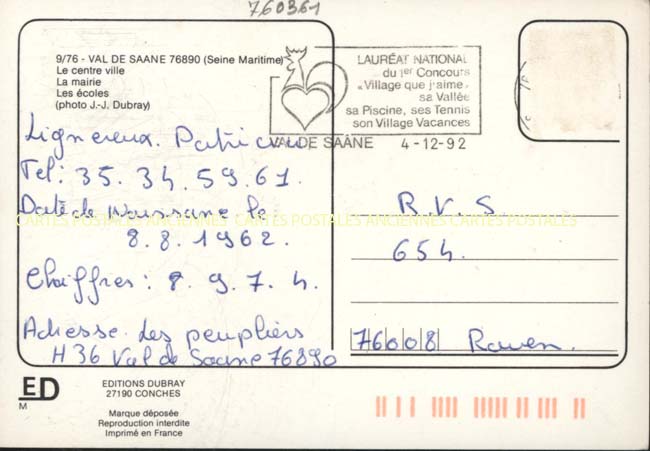 760361
9/76 - VAL DE SAANE 76890 (Seine Maritime)
Le centre ville
La mairie
Les écoles
(photo J.-J. Dubray)
LAURÉAT NATIONAL
du 1er Concours
«Village que j'aime»
sa Vallée
sa Piscine, ses Tennis
son Village Vacances
VAL DE SAÂNE 4-12-92
Lignereux. Patricia
Tel: 35. 34. 59. 61.
Date de Naissance le
8. 8. 1962.
Chiffres: 8. 9. 7. 4.
Adresse. les peupliers
H 36 Val de Saane 76890
CARTES POSTALES ANCIENNES CARTES POSTALES ANCIENNES CARTES POSTALES
R. V. S
654.
76008 Rouen.
ED
M
EDITIONS DUBRAY
27190 CONCHES
Marque déposée
Reproduction interdite
Imprimé en France